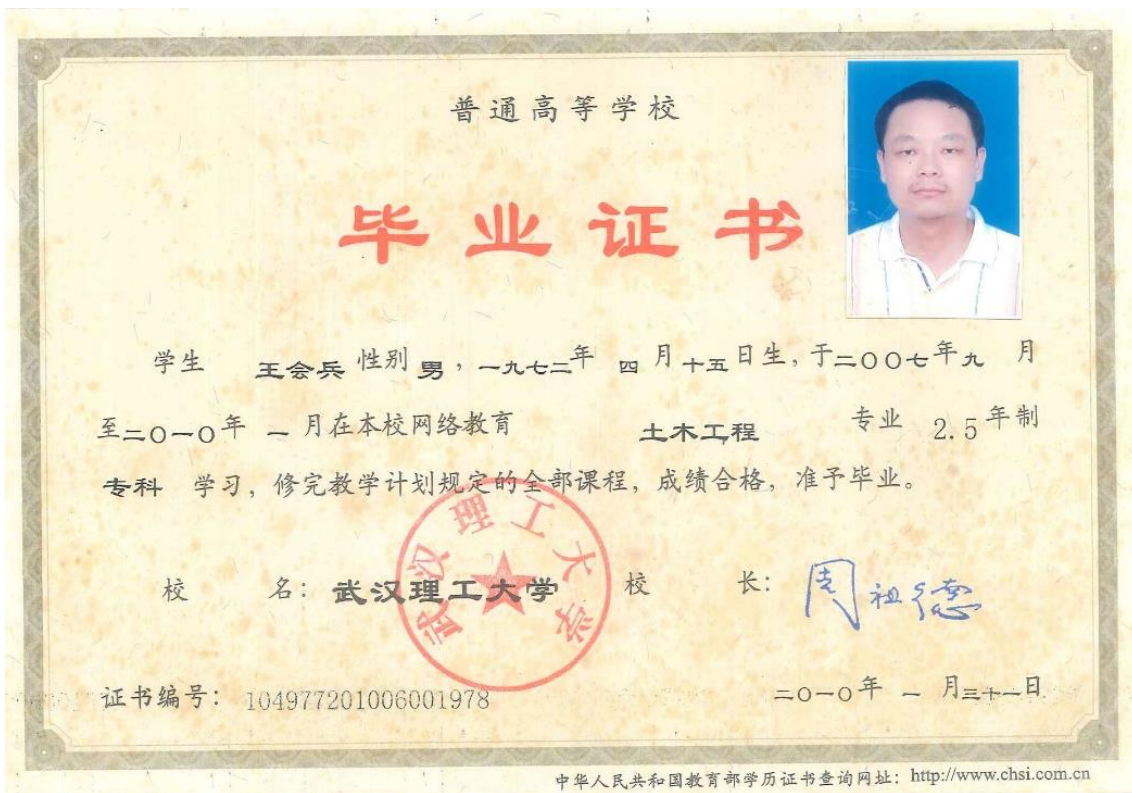 普通高等学校
毕业证书
学生 王会兵 性别 男，一九七二年 四 月 十五 日生，于二〇〇七年九 月
至二〇一〇年 一 月在本校网络教育 土木工程 专业 2.5年制
专科 学习，修完教学计划规定的全部课程，成绩合格，准予毕业。
校 名：武汉理工大学 校 长：周祖德
武汉理工大学
证书编号：104977201006001978 二〇一〇年 一 月三十一日
中华人民共和国教育部学历证书查询网址：http://www.chsi.com.cn